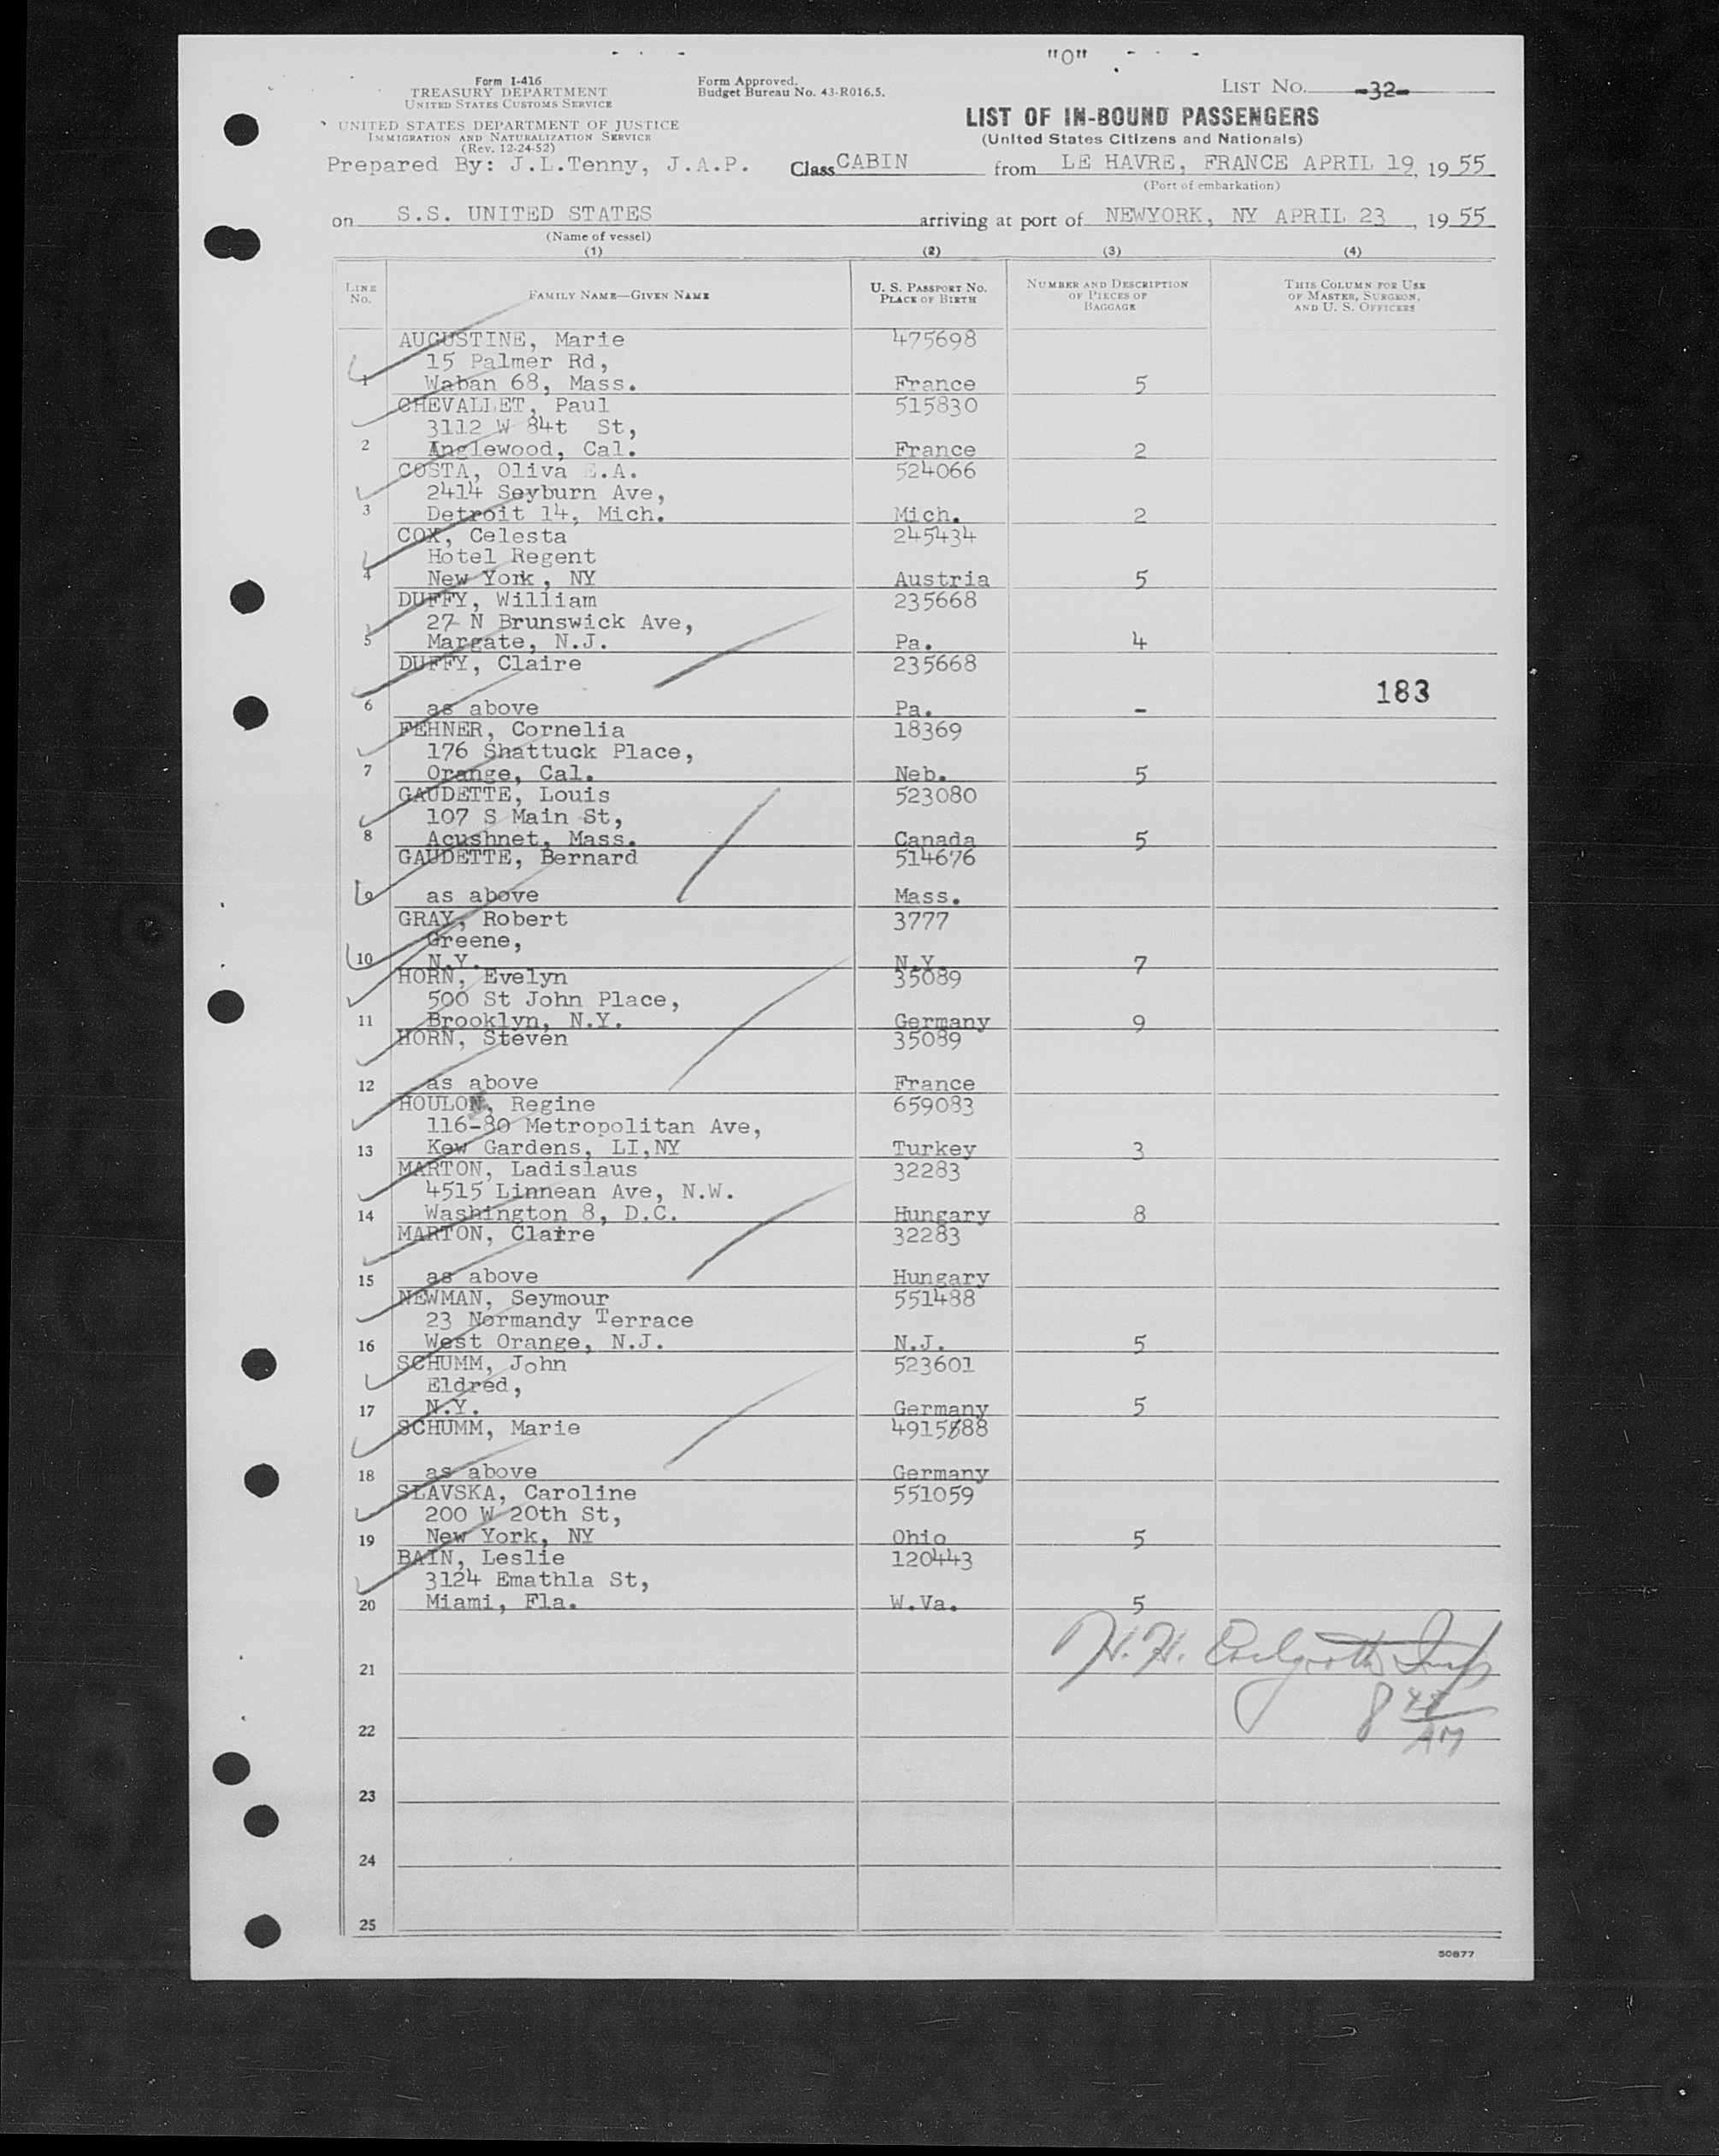 "O"
Form I-416
TREASURY DEPARTMENT
UNITED STATES CUSTOMS SERVICE
Form Approved.
Budget Bureau No. 43-R016.5.
LIST NO. -32-
UNITED STATES DEPARTMENT OF JUSTICE
IMMIGRATION AND NATURALIZATION SERVICE
(Rev. 12-24-52)
LIST OF IN-BOUND PASSENGERS
(United States Citizens and Nationals)
Prepared By: J.L.Tenny, J.A.P. Class CABIN from LE HAVRE, FRANCE APRIL 19, 1955
(Port of embarkation)
on S.S. UNITED STATES arriving at port of NEWYORK, NY APRIL 23, 1955
(Name of vessel)
(1) (2) (3) (4)
LINE NO. FAMILY NAME—GIVEN NAME U. S. PASSPORT NO. PLACE OF BIRTH NUMBER AND DESCRIPTION OF PIECES OF BAGGAGE THIS COLUMN FOR USE OF MASTER, SURGEON, AND U. S. OFFICERS
AUGUSTINE, Marie 475698
15 Palmer Rd,
1 Waban 68, Mass. France 5
CHEVALLET, Paul 515830
3112 W 84t St,
2 Anglewood, Cal. France 2
COSTA, Oliva E.A. 524066
2414 Seyburn Ave,
3 Detroit 14, Mich. Mich. 2
COX, Celesta 245434
Hotel Regent
4 New York, NY Austria 5
DUFFY, William 235668
27 N Brunswick Ave,
5 Margate, N.J. Pa. 4
DUFFY, Claire 235668
183
6 as above Pa. -
FEHNER, Cornelia 18369
176 Shattuck Place,
7 Orange, Cal. Neb. 5
GAUDETTE, Louis 523080
107 S Main St,
8 Acushnet, Mass. Canada 5
GAUDETTE, Bernard 514676
9 as above Mass.
GRAY, Robert 3777
Greene,
10 N.Y. N.Y. 7
HORN, Evelyn 35089
500 St John Place,
11 Brooklyn, N.Y. Germany 9
HORN, Steven 35089
12 as above France
HOULON, Regine 659083
116-80 Metropolitan Ave,
13 Kew Gardens, LI,NY Turkey 3
MARTON, Ladislaus 32283
4515 Linnean Ave, N.W.
14 Washington 8, D.C. Hungary 8
MARTON, Claire 32283
15 as above Hungary
NEWMAN, Seymour 551488
23 Normandy Terrace
16 West Orange, N.J. N.J. 5
SCHUMM, John 523601
Eldred,
17 N.Y. Germany 5
SCHUMM, Marie 4915888
18 as above Germany
SLAVSKA, Caroline 551059
200 W 20th St,
19 New York, NY Ohio 5
BAIN, Leslie 120443
3124 Emathla St,
20 Miami, Fla. W.Va. 5
H. H.
21
8 45
AM
22
23
24
25
50877